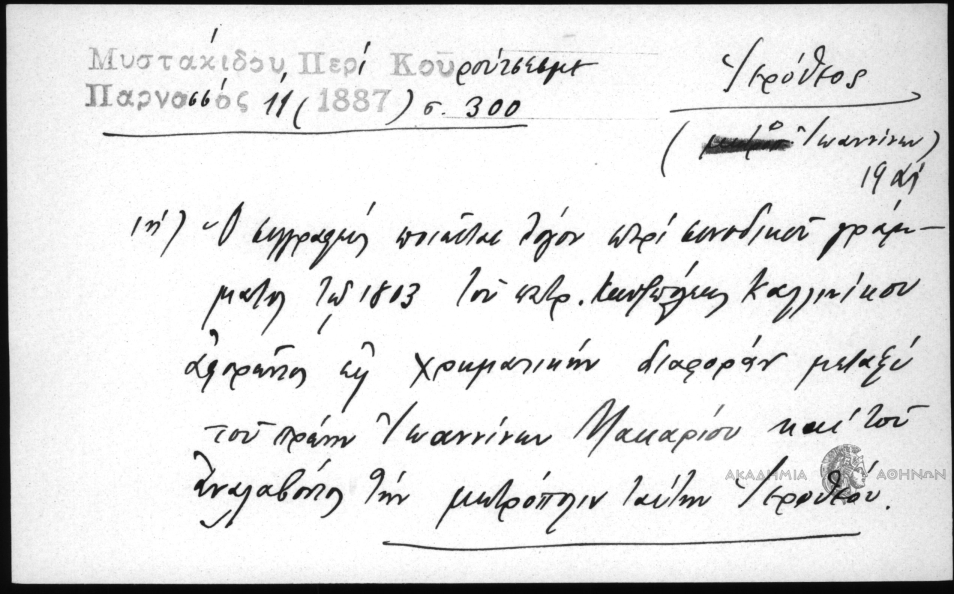 Μυστακίδου Περί Κουρούτσεσμε
Παρνασσός 11 (1887) σ. 300
Ἱερόθεος
Ἰωαννίνων)
19
Ὁ συγγραφεύς ποιεῖται λόγον περί συνοδικοῦ γράμ-
ματος τοῦ 1803 τοῦ πατρ. Κων/πόλεως Καλλινίκου
ἀφορῶντος εἰς χρηματικήν διαφοράν μεταξύ
τοῦ πρώην Ἰωαννίνων Μακαρίου καί τοῦ
ἀναλαβόντος τήν μητρόπολιν ταύτην Ἱεροθέου.
ΑΚΑΔΗΜΙΑ ΑΘΗΝΩΝ